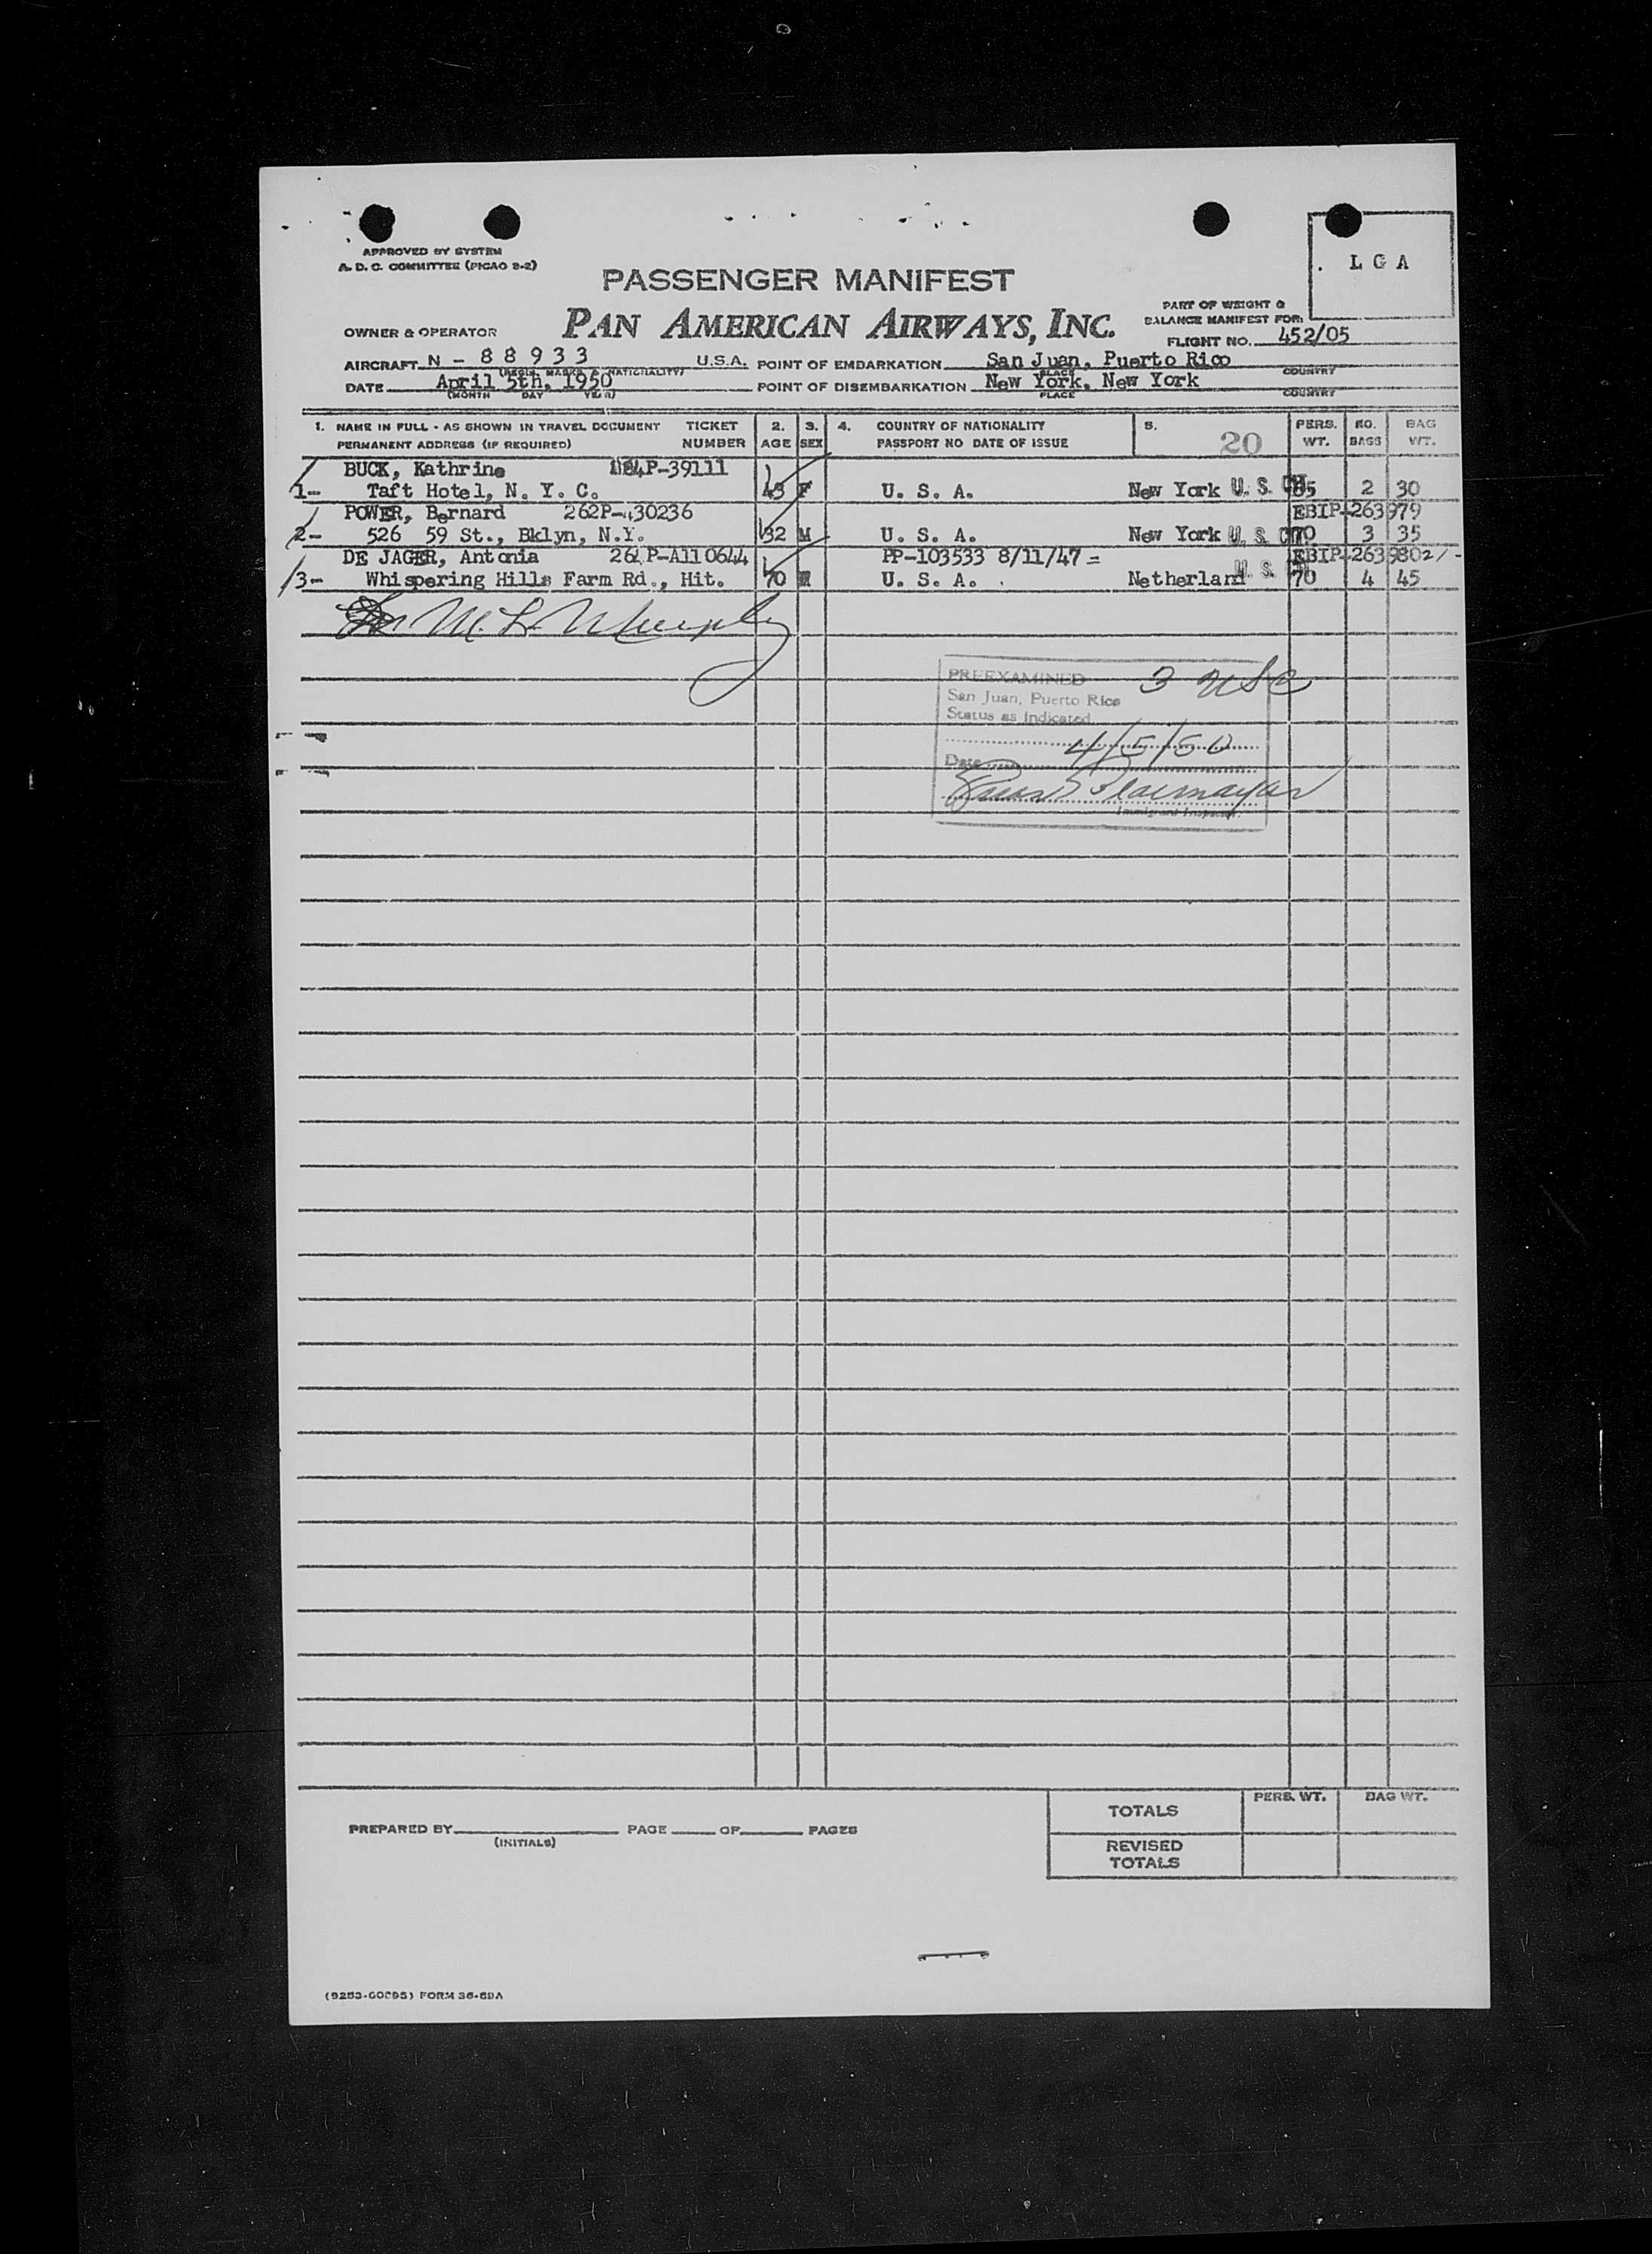 APPROVED BY SYSTEM
A. D. C. COMMITTEE (PICAO 9-2)
L G A
PASSENGER MANIFEST
PART OF WEIGHT &
BALANCE MANIFEST FOR:
OWNER & OPERATOR PAN AMERICAN AIRWAYS, INC.
FLIGHT NO. 452/05
AIRCRAFT N - 8 8 9 3 3 U.S.A. POINT OF EMBARKATION San Juan, Puerto Rico
(REGIS. MARKS & NATIONALITY) PLACE COUNTRY
DATE April 5th, 1950 POINT OF DISEMBARKATION New York, New York
(MONTH DAY YEAR) PLACE COUNTRY
1. NAME IN FULL - AS SHOWN IN TRAVEL DOCUMENT TICKET 2. 3. 4. COUNTRY OF NATIONALITY 5. PERS. NO. BAG
PERMANENT ADDRESS (IF REQUIRED) NUMBER AGE SEX PASSPORT NO DATE OF ISSUE 20 WT. BAGS WT.
BUCK, Kathrine P-39111
1- Taft Hotel, N. Y. C. F U. S. A. New York U. S. 2 30
POWER, Bernard 262P-430236 EBIP-263979
2- 526 59 St., Bklyn, N.Y. 32 M U. S. A. New York U. S. 70 3 35
DE JAGER, Antonia 262P-A110644 PP-103533 8/11/47 = EBIP-263980
3- Whispering Hills Farm Rd., Hit. 70 U. S. A. Netherland U. S. 70 4 45
M. L. Murphy
PREEXAMINED 3 USC
San Juan, Puerto Rico
Status as indicated
Date 4/5/50
Immigrant Inspector.
TOTALS PERS. WT. BAG WT.
PREPARED BY PAGE OF PAGES
(INITIALS)
REVISED
TOTALS
(9283-00095) FORM 36-69A